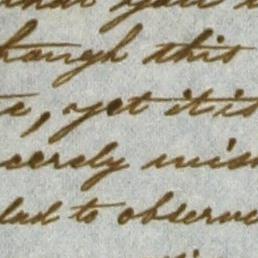 you
though this
, yet it is
cerely wis
lad to observe